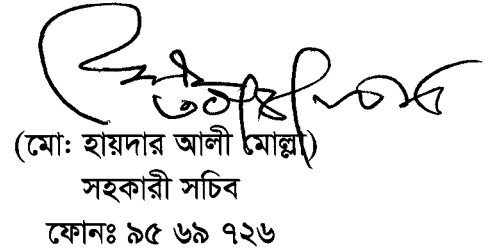 (মো: হায়দার আলী মোল্লা)
সহকারী সচিব
ফোনঃ ৯৫ ৬৯ ৭২৬